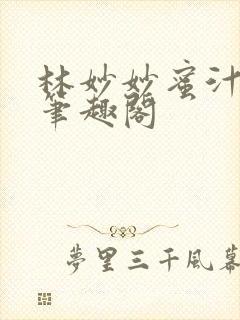 林妙妙蜜汁
筆趣閣
夢里三千風幕